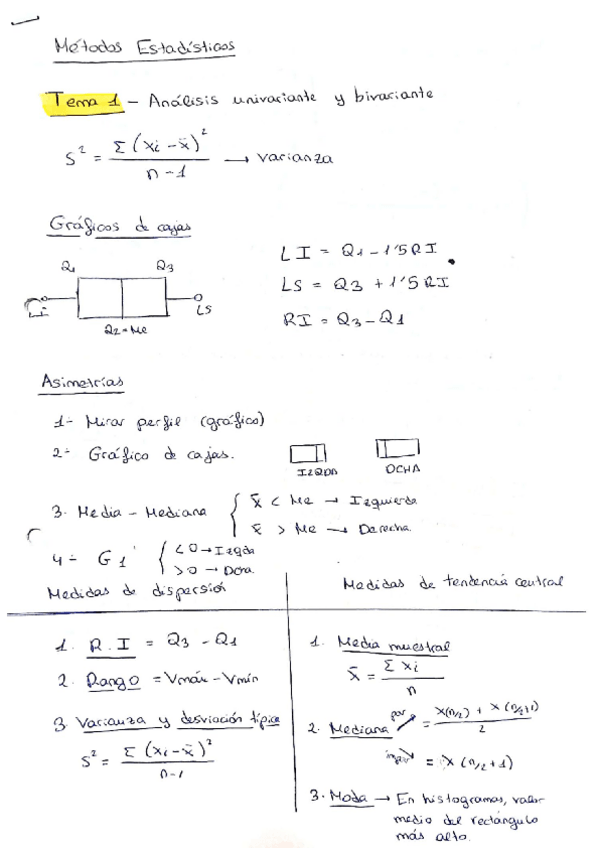 Métodos Estadísticos
Tema 1 - Análisis univariante y bivariante
S² = Σ(xi - x̄)² / n-1 → varianza
Gráficos de cajas
Q1 Q3
Li LS
Q2=Me
LI = Q1 - 1'5RI
LS = Q3 + 1'5RI
RI = Q3 - Q1
Asimetrías
1- Mirar perfil (gráfico)
2- Gráfico de cajas.
IZQDA DCHA
3. Media - Mediana { x̄ < Me → Izquierda
x̄ > Me → Derecha.
4- G1 { <0 → Izqda
>0 → Dcha.
Medidas de dispersión
1. R.I = Q3 - Q1
2. Rango = Vmáx - Vmín
3. Varianza y desviación típica
S² = Σ(xi - x̄)² / n-1
Medidas de tendencia central
1. Media muestral
x̄ = Σxi / n
2. Mediana par = X(n/2) + X(n/2+1) / 2
impar = X(n/2+1)
3. Moda → En histogramas, valor
medio del rectángulo
más alto.